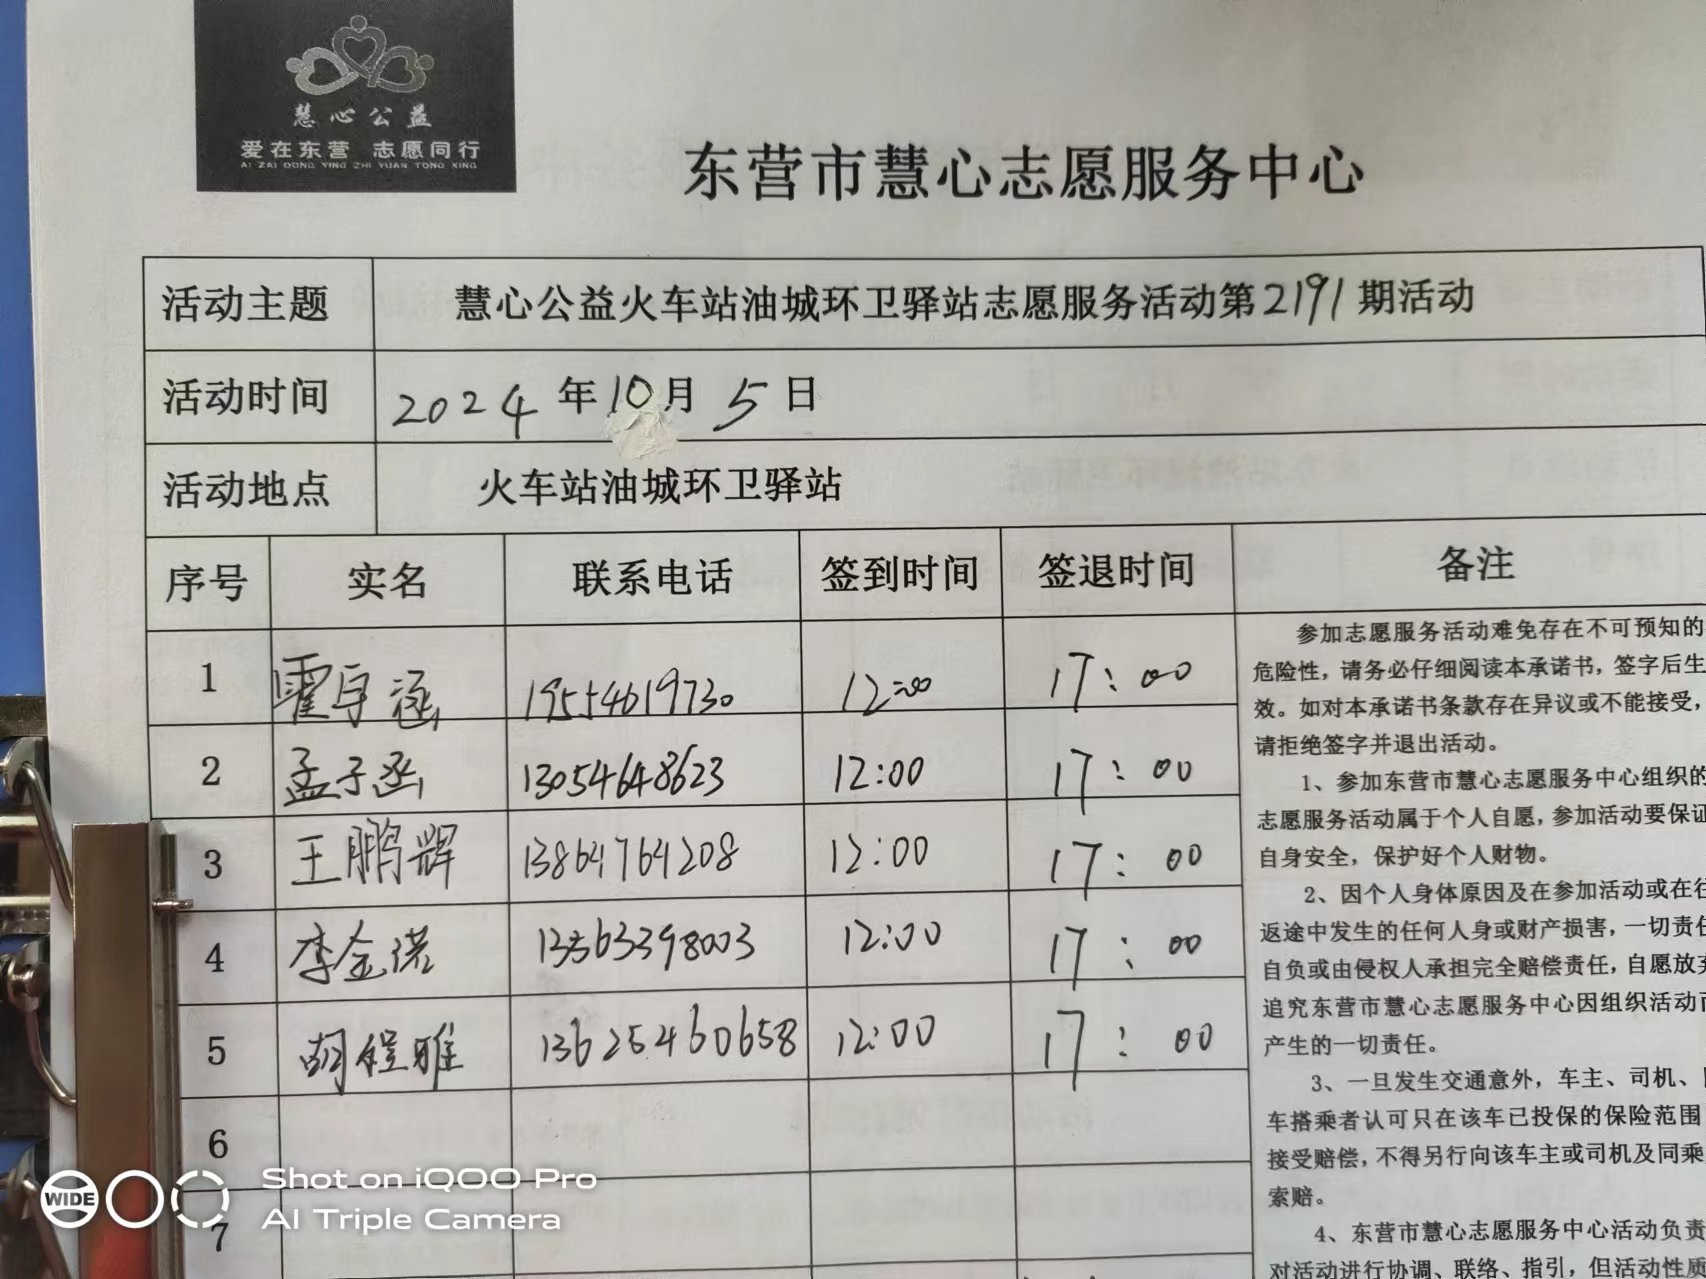 慧心公益
爱在东营 志愿同行
AI ZAI DONG YING ZHI YUAN TONG XING
东营市慧心志愿服务中心
活动主题 慧心公益火车站油城环卫驿站志愿服务活动第2191期活动
活动时间 2024年10月5日
活动地点 火车站油城环卫驿站
序号 实名 联系电话 签到时间 签退时间 备注
1 霍宇涵 19554619730 12:00 17:00
2 孟子函 13054648623 12:00 17:00
3 王鹏辉 13864764208 12:00 17:00
4 李金诺 13563398003 12:00 17:00
5 胡程雅 13625460658 12:00 17:00
6
7
参加志愿服务活动难免存在不可预知的
危险性，请务必仔细阅读本承诺书，签字后生
效。如对本承诺书条款存在异议或不能接受，
请拒绝签字并退出活动。
1、参加东营市慧心志愿服务中心组织的
志愿服务活动属于个人自愿，参加活动要保证
自身安全，保护好个人财物。
2、因个人身体原因及在参加活动或在往
返途中发生的任何人身或财产损害，一切责任
自负或由侵权人承担完全赔偿责任，自愿放弃
追究东营市慧心志愿服务中心因组织活动而
产生的一切责任。
3、一旦发生交通意外，车主、司机、
车搭乘者认可只在该车已投保的保险范围
接受赔偿，不得另行向该车主或司机及同乘
索赔。
4、东营市慧心志愿服务中心活动负责
对活动进行协调、联络、指引，但活动性质
WIDE
Shot on iQOO Pro
AI Triple Camera